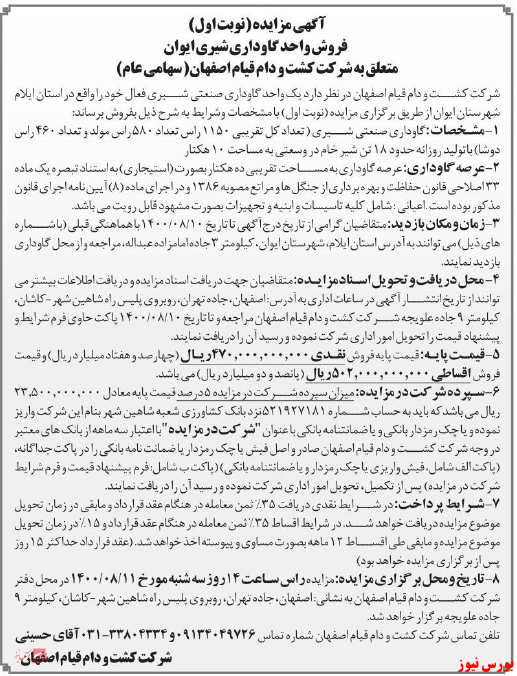 آگهی مزایده (نوبت اول)
فروش واحد گاوداری شیری ایوان
متعلق به شرکت کشت و دام قیام اصفهان (سهامی عام)
شرکت کشت و دام قیام اصفهان در نظر دارد یک واحد گاوداری صنعتی شیری فعال خود را واقع در استان ایلام
شهرستان ایوان از طریق برگزاری مزایده (نوبت اول) با مشخصات و شرایط به شرح ذیل بفروش برساند:
۱- مشخصات: گاوداری صنعتی شیری (تعداد کل تقریبی ۱۱۵۰ راس تعداد ۵۸۰ راس مولد و تعداد ۴۶۰ راس
دوشا) با تولید روزانه حدود ۱۸ تن شیر خام در وسعتی به مساحت ۱۰ هکتار
۲- عرصه گاوداری: عرصه گاوداری به مساحت تقریبی ده هکتار بصورت (استیجاری) به استناد تبصره یک ماده
۳۳ اصلاحی قانون حفاظت و بهره برداری از جنگل ها و مراتع مصوبه ۱۳۸۶ و در اجرای ماده (۸) آیین نامه اجرای قانون
مذکور بوده است. اعیانی: شامل کلیه تاسیسات و ابنیه و تجهیزات بصورت مشهود قابل رویت می باشد.
۳- زمان و مکان بازدید: متقاضیان گرامی از تاریخ درج آگهی تا تاریخ ۱۴۰۰/۰۸/۱۰ با هماهنگی قبلی (با شماره
های ذیل) می توانند به آدرس استان ایلام، شهرستان ایوان، کیلومتر ۳ جاده امامزاده عبداله، مراجعه و از محل گاوداری
بازدید نمایند.
۴- محل دریافت و تحویل اسناد مزایده: متقاضیان جهت دریافت اسناد مزایده و دریافت اطلاعات بیشتر می
توانند از تاریخ انتشار آگهی در ساعات اداری به آدرس: اصفهان، جاده تهران، روبروی پلیس راه شاهین شهر-کاشان،
کیلومتر ۹ جاده علویجه شرکت کشت و دام قیام اصفهان مراجعه و تا تاریخ ۱۴۰۰/۰۸/۱۰ پاکت حاوی فرم شرایط و
پیشنهاد قیمت را تحویل امور اداری شرکت نموده و رسید آن را دریافت نمایند.
۵- قیمت پایه: قیمت پایه فروش نقدی ۴۷۰,۰۰۰,۰۰۰,۰۰۰ ریال (چهارصد و هفتاد میلیارد ریال) و قیمت
فروش اقساطی ۵۰۲,۰۰۰,۰۰۰,۰۰۰ ریال (پانصد و دو میلیارد ریال) می باشد.
۶- سپرده شرکت در مزایده: میزان سپرده شرکت در مزایده ۵ درصد قیمت پایه معادل ۲۳,۵۰۰,۰۰۰,۰۰۰
ریال می باشد که باید به حساب شماره ۵۲۱۹۲۷۱۸۱ نزد بانک کشاورزی شعبه شاهین شهر بنام این شرکت واریز
نموده و یا چک رمزدار بانکی و یا ضمانتنامه بانکی با عنوان "شرکت در مزایده" با اعتبار سه ماهه از بانک های معتبر
در وجه شرکت کشت و دام قیام اصفهان صادر و اصل فیش یا چک رمزدار یا ضمانت نامه بانکی را در پاکت جداگانه،
(پاکت الف شامل، فیش واریزی یا چک رمزدار و یا ضمانتنامه بانکی) (پاکت ب شامل: فرم پیشنهاد قیمت و فرم شرایط
شرکت در مزایده) پس از تکمیل، تحویل امور اداری شرکت نموده و رسید آن را دریافت نمایند.
۷- شرایط پرداخت: در شرایط نقدی دریافت ۳۵٪ ثمن معامله در هنگام عقد قرارداد و مابقی در زمان تحویل
موضوع مزایده دریافت خواهد شد. در شرایط اقساط ۳۵٪ ثمن معامله در هنگام عقد قرارداد و ۱۵٪ در زمان تحویل
موضوع مزایده و مابقی طی اقساط ۱۲ ماهه بصورت مساوی و پیوسته اخذ خواهد شد. (عقد قرارداد حداکثر ۱۵ روز
پس از برگزاری مزایده خواهد بود)
۸- تاریخ و محل برگزاری مزایده: مزایده راس ساعت ۱۴ روز سه شنبه مورخ ۱۴۰۰/۰۸/۱۱ در محل دفتر
شرکت کشت و دام قیام اصفهان به نشانی: اصفهان، جاده تهران، روبروی پلیس راه شاهین شهر-کاشان، کیلومتر ۹
جاده علویجه برگزار خواهد شد.
تلفن تماس شرکت کشت و دام قیام اصفهان شماره تماس ۰۹۱۳۴۰۴۹۷۲۶ و ۳۳۸۰۴۳۳۴-۰۳۱ آقای حسینی
شرکت کشت و دام قیام اصفهان
بورس نیوز